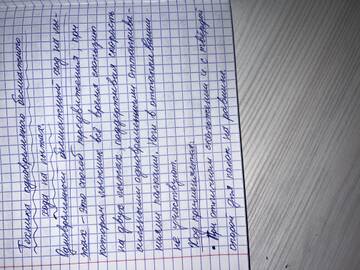 Техника одновременного бесшажного
хода на лыжах.
Одновременный бесшажный ход на лы-
жах - это способ передвижения, при
котором лыжник всё время скользит
на двух лыжах, поддерживая скорость
одновременными отталкива-
ниями палками. Ноги в отталкивании
не участвуют.
Ход применяется:
• При отличном скольжении и с твёрдой
опорой для палок на равнине.